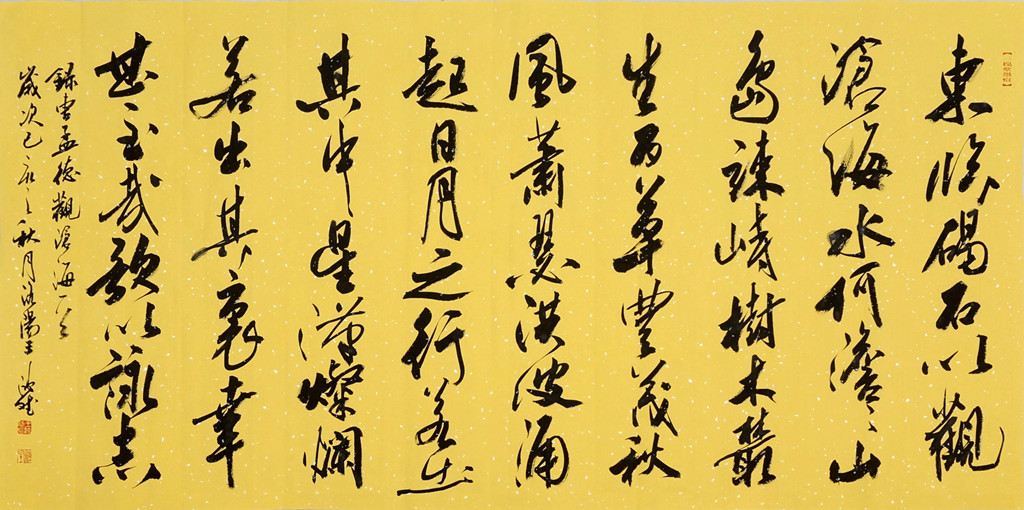 東臨碣石以觀
滄海水何澹〻山
島竦峙樹木叢
生百草豐茂秋
風蕭瑟洪波涌
起日月之行若出
其中星漢燦爛
若出其裏幸
甚至哉歌以詠志
錄曹孟德觀滄海一首
歲次己亥之秋月洛陽王